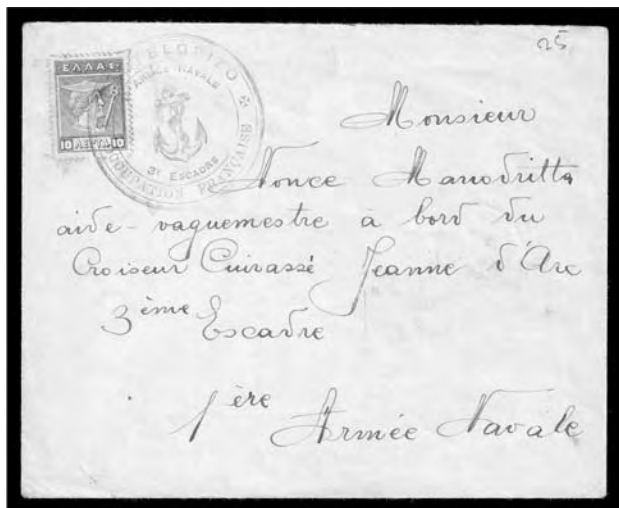 25
ΕΛΛΑΣ
10 ΛΕΠΤΑ 10
ARMÉE NAVALE
3E ESCADRE
OCCUPATION FRANÇAISE
Monsieur
Nonce Manodritta
aide-vaguemestre à bord du
Croiseur Cuirassé Jeanne d'Arc
3ème Escadre
1ère Armée Navale